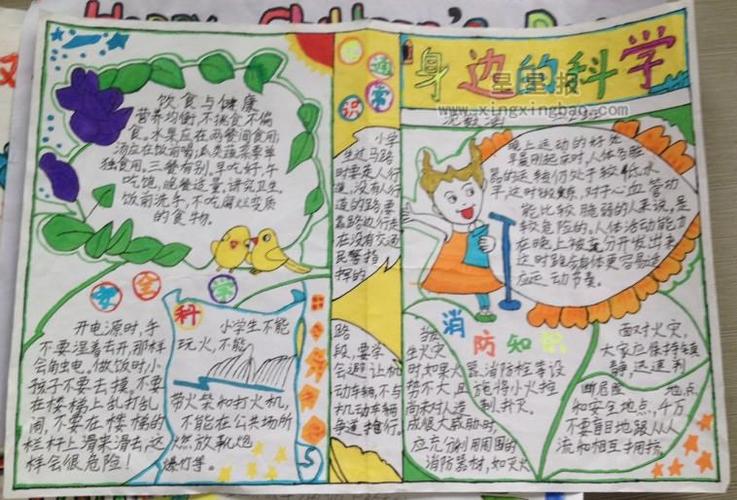 Happy
饮食与健康
营养均衡,不挑食不偏
食。水果应在两餐间食用,
汤应在饭前喝,瓜类蔬菜要单
独食用。三餐有别。早吃好,午
吃饱,晚餐适量,讲究卫生。
饭前洗手,不吃腐烂变质
的食物。
安全学
开电源时,手
不要湿着去开,那样
会触电。做饭时,小
孩子不要去摸,不要
在楼梯上乱打乱
闹,不要在楼梯的
栏杆上滑来滑去,这
样会很危险!
科
小学生不能
玩火,不能
带火柴和打火机,
不能在公共场所
燃放鞭炮
爆竹等。
交通常识
小学
生过马路
时要走人行
道,没有人行
道的路,要
靠路边行走
在没有交通
民警指
挥的
路
段,要学
会避让机
动车辆,不与
机动车辆
争道抢行。
身边的科学
星星报
www.xingxingbao.com
晚上运动的好处
早晨刚起床时,人体各脏
器的运转仍处于较低水
平,这时锻炼,对于心血管功
能比较脆弱的人来说,是
较危险的。人体活动能力
在晚上被充分开发出来
这时跑与身体更容易适
应运动节奏。
消防知识
生火灾
时,如果火
势不大,且
尚未对人造
成很大威胁时,
应充分利用周围的
消防器材,如灭火
器、消防栓等设
施将小火控
制、扑灭。
面对火灾,
大家应保持镇
静,迅速判
断危险地点
和安全地点,千万
不要盲目地跟从人
流和相互拥挤